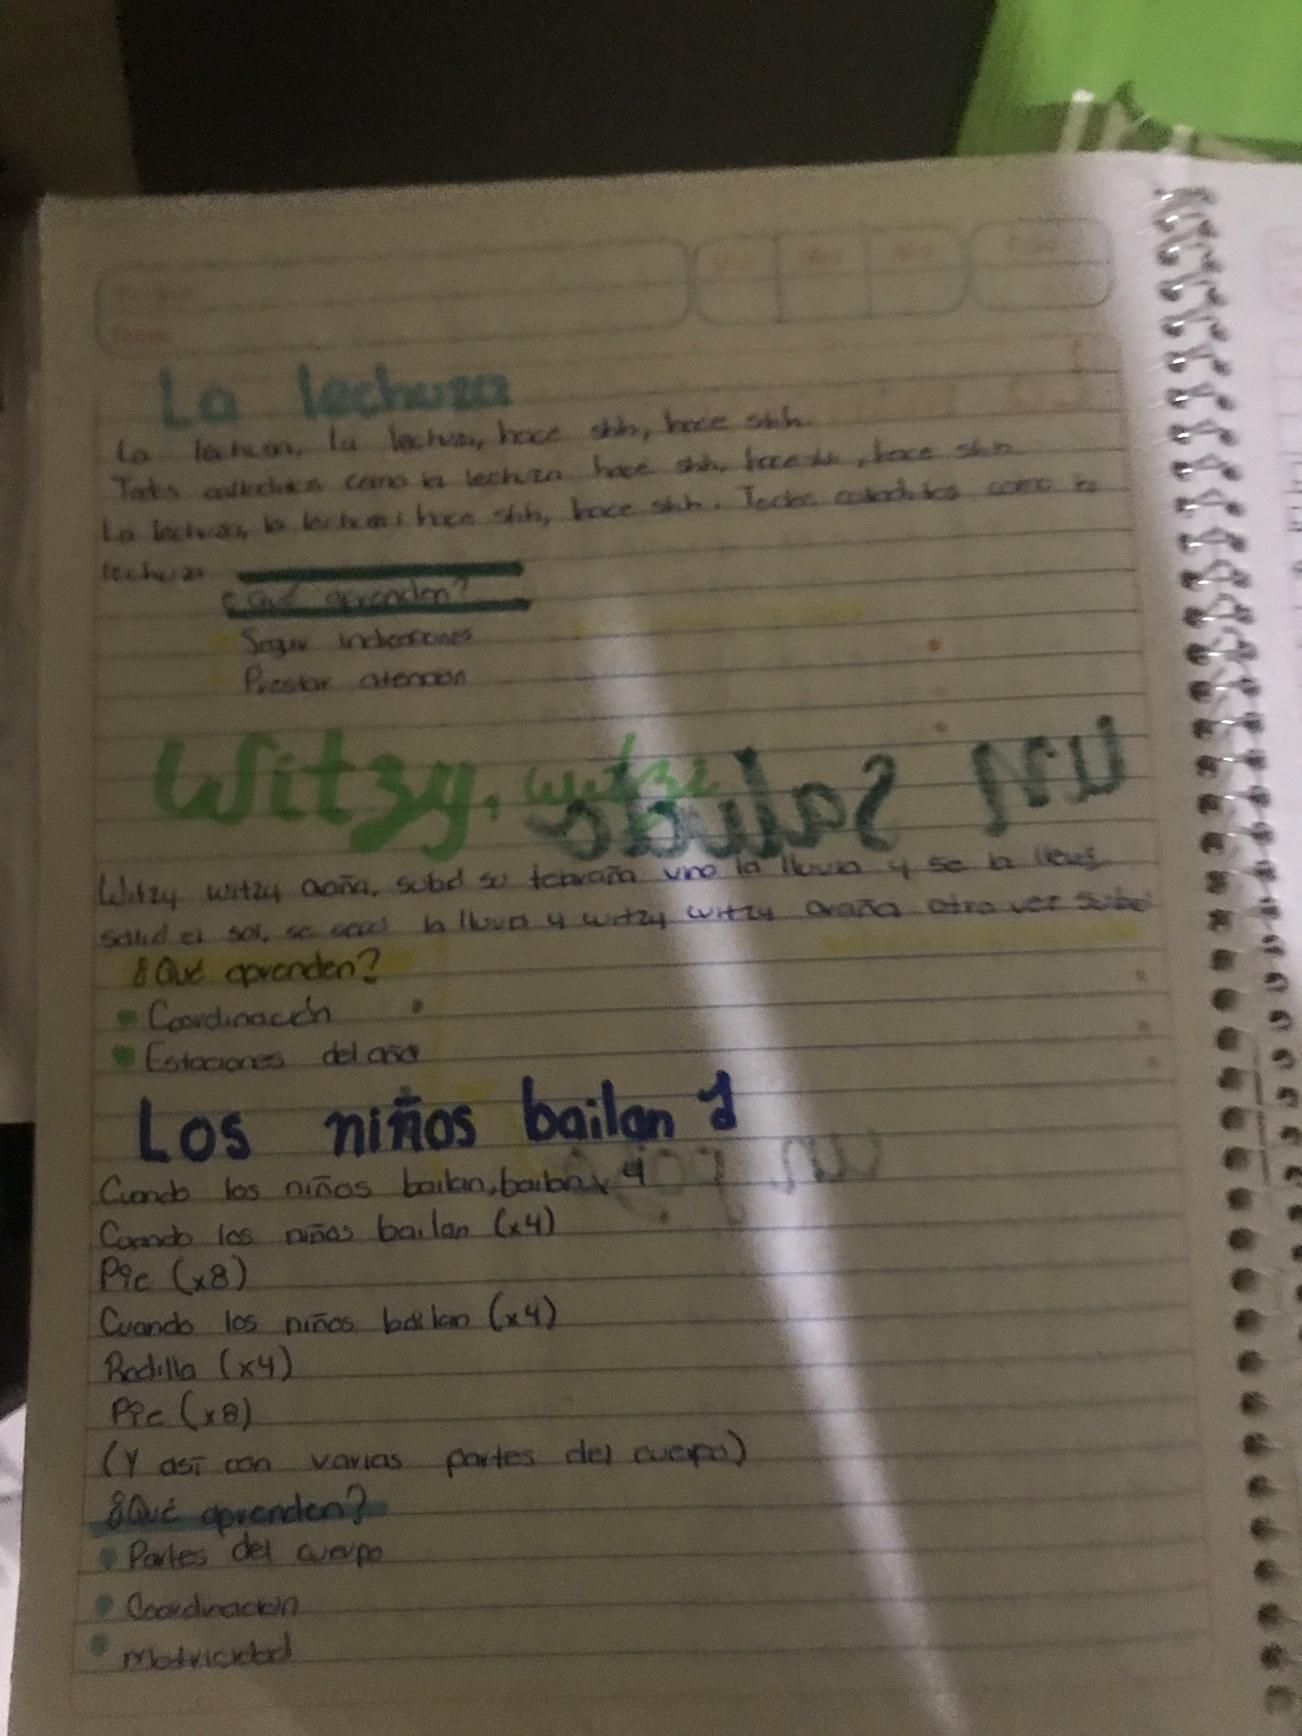 La lechuza
La lechuza, la lechuza, hace shh, hace shh.
Todos calladitos como la lechuza hace shh, hace shh, hace shh
La lechuza, la lechuza hace shh, hace shh. Todos calladitos como la
lechuza
¿Qué aprenden?
Seguir indicaciones
Prestar atención
Witzy, witzi
Witzy witzy araña, subió su telaraña vino la lluvia y se la llevó
salió el sol, se secó la lluvia y witzy witzy araña otra vez subió
¿Qué aprenden?
Coordinación
Estaciones del año
Los niños bailan 1
Cuando los niños bailan, bailan x 4
Cuando los niños bailan (x4)
Pie (x8)
Cuando los niños bailan (x4)
Rodilla (x4)
Pie (x8)
(Y así con varias partes del cuerpo)
¿Qué aprenden?
Partes del cuerpo
Coordinación
Motricidad